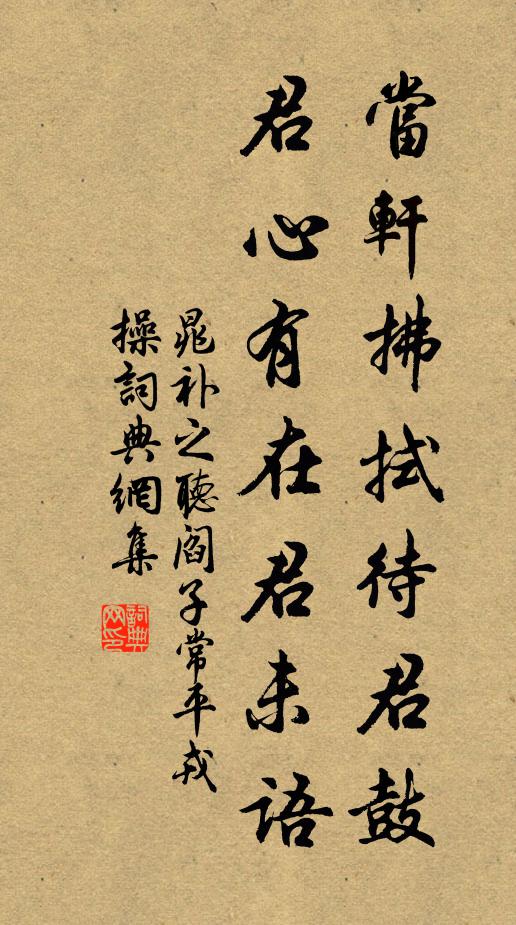 當軒拂拭待君鼓
君心有在君未語
晁补之聽閻子常平戎
操詞典網集
詞典
网印